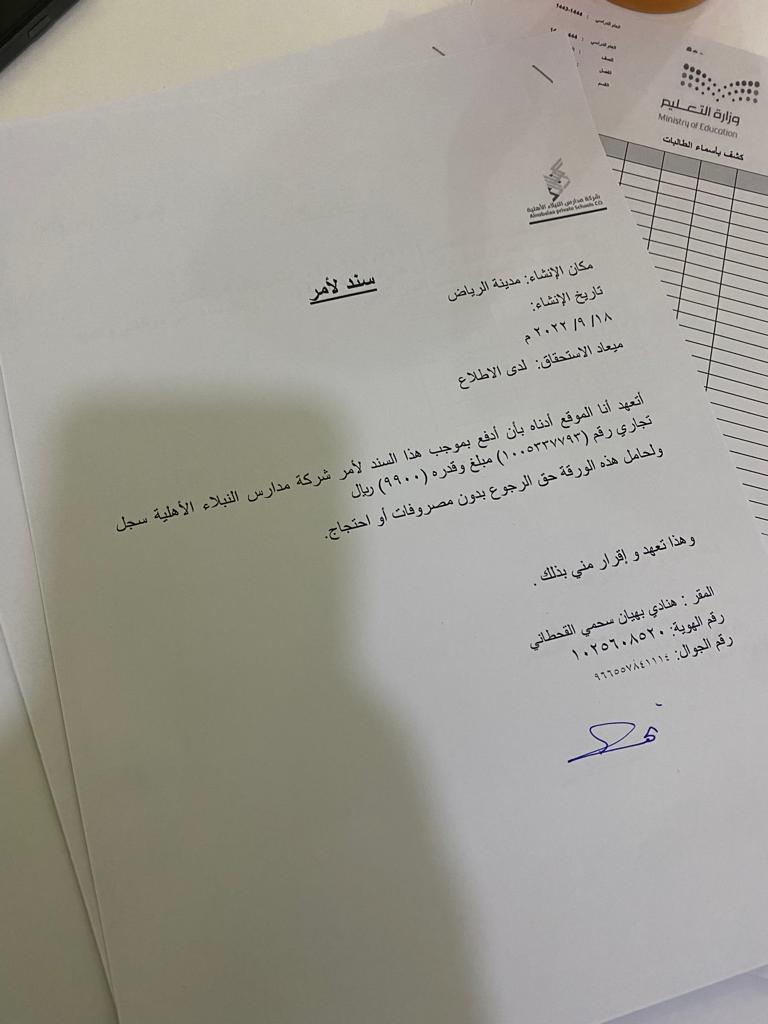 العام الدراسي : 1444-1443
العام الدراسي :
الصف :
الفصل
القسم
وزارة التعليم
Ministry of Education
كشف بأسماء الطالبات
شركة مدارس النبلاء الأهلية
Alnobalaa private Schools CO.
سند لأمر
مكان الإنشاء: مدينة الرياض
تاريخ الإنشاء:
١٨/ ٩/ ٢٠٢٢ م
ميعاد الاستحقاق: لدى الاطلاع
أتعهد أنا الموقع أدناه بأن أدفع بموجب هذا السند لأمر شركة مدارس النبلاء الأهلية سجل
تجاري رقم (١٠٠٥٣٣٧٧٩٣) مبلغ وقدره (٩٩٠٠) ريال
ولحامل هذه الورقة حق الرجوع بدون مصروفات أو احتجاج.
وهذا تعهد و إقرار مني بذلك .
المقر : هنادي بهيان سحمي القحطاني
رقم الهوية: ١٠٢٥٦٠٨٥٢٠
رقم الجوال: ٩٦٦٥٥٧٨٤١١١٤